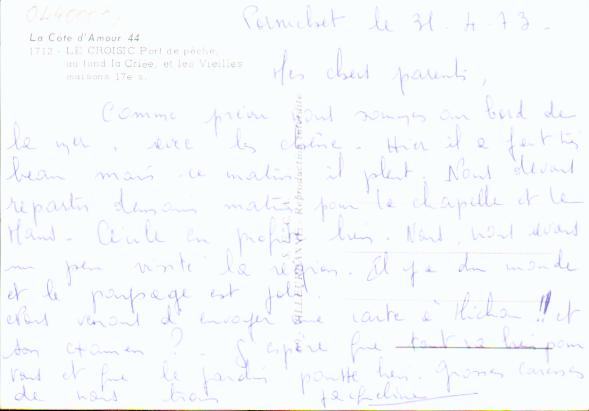 Pornichet le 31.4.73.
La Côte d'Amour 44
1712 - LE CROISIC Port de pêche,
au fond la Criée, et les Vieilles
maisons 17e s.
Mes chers parents,
Comme prévu nous sommes au bord de
la mer, avec les . Hier il a fait très
beau mais ce matin il pleut. Nous devons
repartir demain matin pour la chapelle et le
Mans. Cécile en profite bien. Nous, nous avons
un peu visité la région. Il y a du monde
et le paysage est joli.
Nous venons d'envoyer une carte à Michou !! et
son examen ? J'espère que tout va bien pour
vous et que le jardin pousse bien. Grosses caresses
de nous trois Jacqueline
Reproduction interdite